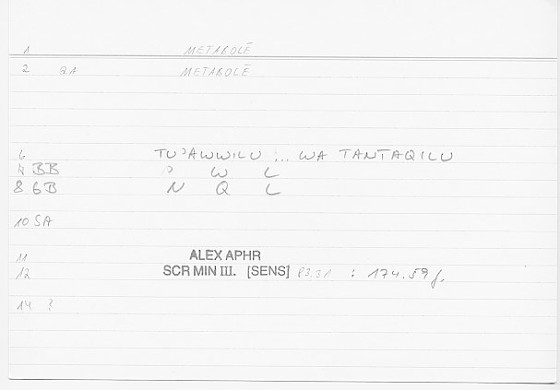 1 METABOLĒ
2 8A METABOLĒ
6 TUʾAWWILU ... WA TANTAQILU
7 BB ʾ W L
8 6B N Q L
10 SA
11 ALEX APHR
12 SCR MIN III. [SENS] : 174.59 f.
14 ?